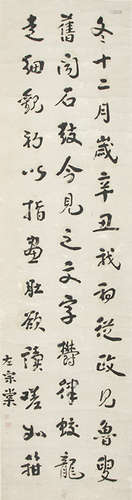 冬十二月歲辛丑我初從政見魯叟
舊聞石鼓今見之文字鬱律蛟龍
走細觀初以指畫肚欲讀嗟如箝
左宗棠